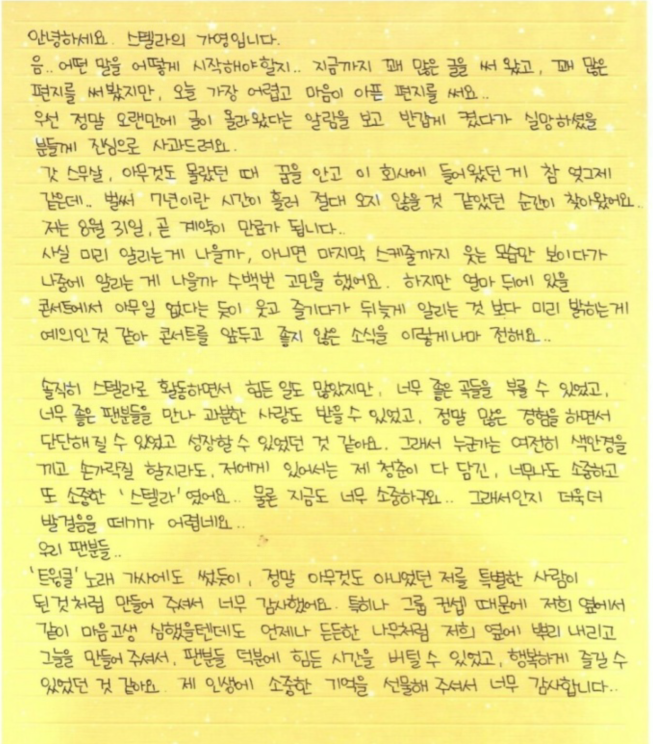 안녕하세요. 스텔라의 가영입니다.
음.. 어떤 말을 어떻게 시작해야할지.. 지금까지 꽤 많은 글을 써 왔고, 꽤 많은
편지를 써봤지만, 오늘 가장 어렵고 마음이 아픈 편지를 써요..
우선 정말 오랜만에 글이 올라왔다는 알람을 보고 반갑게 켰다가 실망하셨을
분들께 진심으로 사과드려요.
갓 스무살, 아무것도 몰랐던 때 꿈을 안고 이 회사에 들어왔던 게 참 엊그제
같은데.. 벌써 7년이란 시간이 흘러 절대 오지 않을 것 같았던 순간이 찾아왔어요..
저는 8월 31일, 곧 계약이 만료가 됩니다..
사실 미리 알리는게 나을까, 아니면 마지막 스케줄까지 웃는 모습만 보이다가
나중에 알리는 게 나을까 수백번 고민을 했어요. 하지만 얼마 뒤에 있을
콘서트에서 아무일 없다는 듯이 웃고 즐기다가 뒤늦게 알리는 것 보다 미리 밝히는게
예의인것 같아 콘서트를 앞두고 좋지 않은 소식을 이렇게나마 전해요..
솔직히 스텔라로 활동하면서 힘든 일도 많았지만, 너무 좋은 곡들을 부를 수 있었고,
너무 좋은 팬분들을 만나 과분한 사랑도 받을 수 있었고, 정말 많은 경험을 하면서
단단해질 수 있었고 성장할 수 있었던 것 같아요. 그래서 누군가는 여전히 색안경을
끼고 손가락질 할지라도, 저에게 있어서는 제 청춘이 다 담긴, 너무나도 소중하고
또 소중한 '스텔라'였어요.. 물론 지금도 너무 소중하구요.. 그래서인지 더욱더
발걸음을 떼기가 어렵네요..
우리 팬분들..
'트윙클' 노래 가사에도 썼듯이, 정말 아무것도 아니었던 저를 특별한 사람이
된것처럼 만들어 주셔서 너무 감사했어요. 특히나 그룹 컨셉 때문에 저희 옆에서
같이 마음고생 심했을텐데도 언제나 든든한 나무처럼 저희 옆에 뿌리 내리고
그늘을 만들어 주셔서, 팬분들 덕분에 힘든 시간을 버틸 수 있었고, 행복하게 즐길 수
있었던 것 같아요. 제 인생에 소중한 기억을 선물해 주셔서 너무 감사합니다..